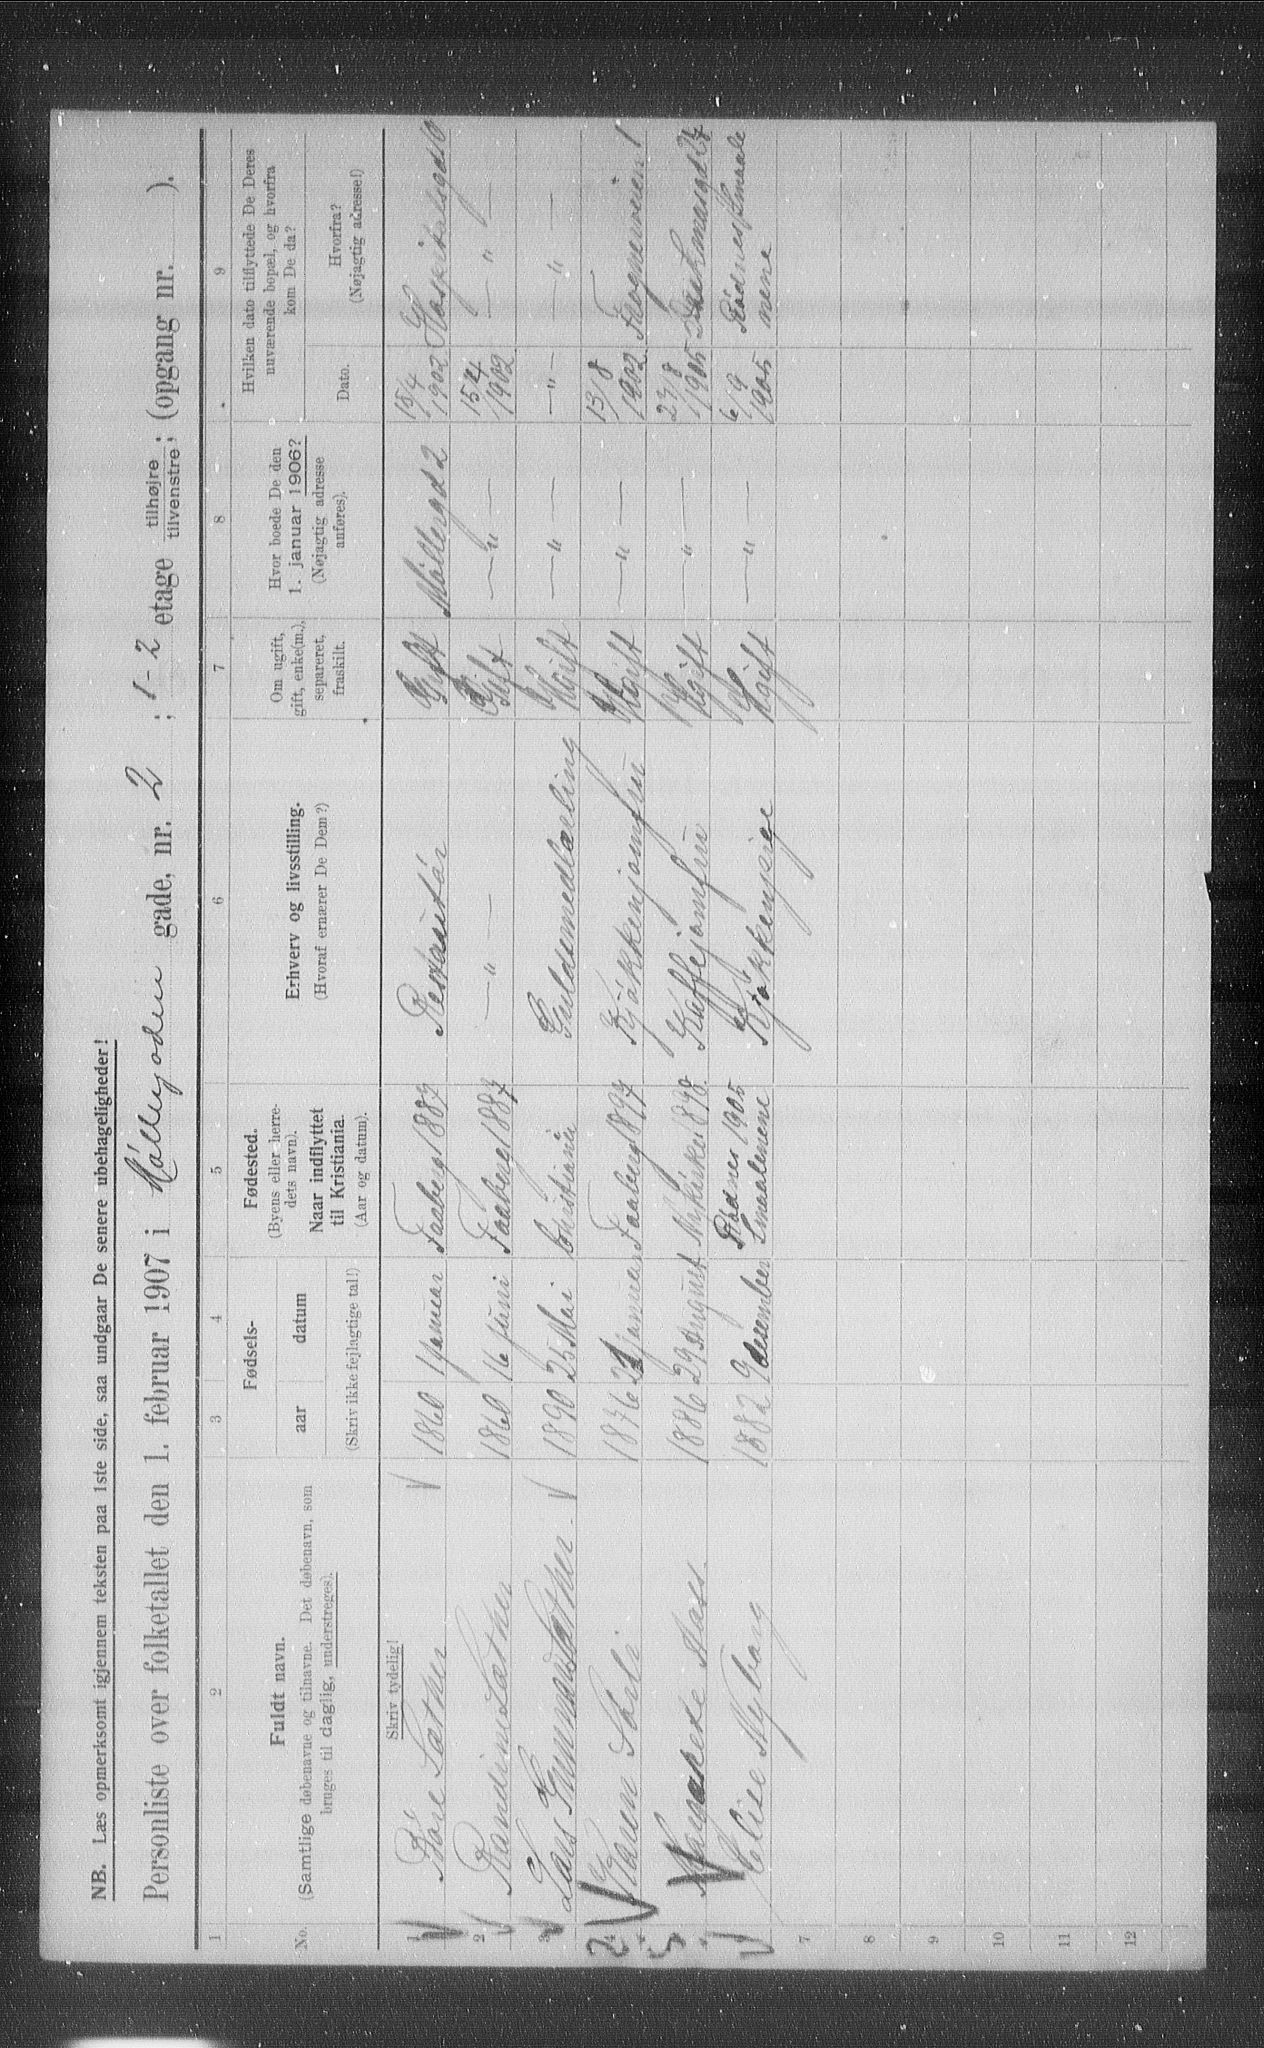 NB. Læs opmerksomt igjennem teksten paa 1ste side, saa undgaar De senere ubehageligheder!
Personliste over folketallet den 1. februar 1907 i Møllergaden gade, nr. 2 ; 1-2 etage tilhøjre/tilvenstre; (opgang nr. ).
1 2 3 4 5 6 7 8 9
No.
Fuldt navn.
(Samtlige døbenavne og tilnavne. Det døbenavn, som
bruges til daglig, understreges).
Fødsels-
aar datum
(Skriv ikke fejlagtige tal!)
Fødested.
(Byens eller herre-
dets navn).
Naar indflyttet
til Kristiania.
(Aar og datum).
Erhverv og livsstilling.
(Hvoraf ernærer De Dem?)
Om ugift,
gift, enke(m.),
separeret,
fraskilt.
Hvor boede De den
1. januar 1906?
(Nøjagtig adresse
anføres).
Hvilken dato tilflyttede De Deres
nuværende bopæl, og hvorfra
kom De da?
Dato.
Hvorfra?
(Nøjagtig adresse!)
Skriv tydelig!
1 Sæther 1860 1 Januar Faaberg 1887 Restautør Gift Møllergd 2 15/4 1902 Hospitalsgd 10
2 Randine Sæther 1860 16 Juni Faaberg 1887 —"— Gift —"— 15 4 1902 —"—
3 Lars Sæther 1890 25 Mai Christiania Guldsmedlærling Ugift —"— —"— —"—
4 Karen 1876 21 Januar Faaberg 1897 Kjøkkenjomfru Ugift —"— 13/8 1902 Frognerveien 1
5 1886 29 August 1890 Kaffejomfru Ugift —"— 27/8 1905
Elise Nyborg 1882 9 desember Rødnes 1905 Smaalenene Kjøkkenpige Ugift —"— 6/9 1905 Rødnes Smaale
nene
7
8
9
10
11
12